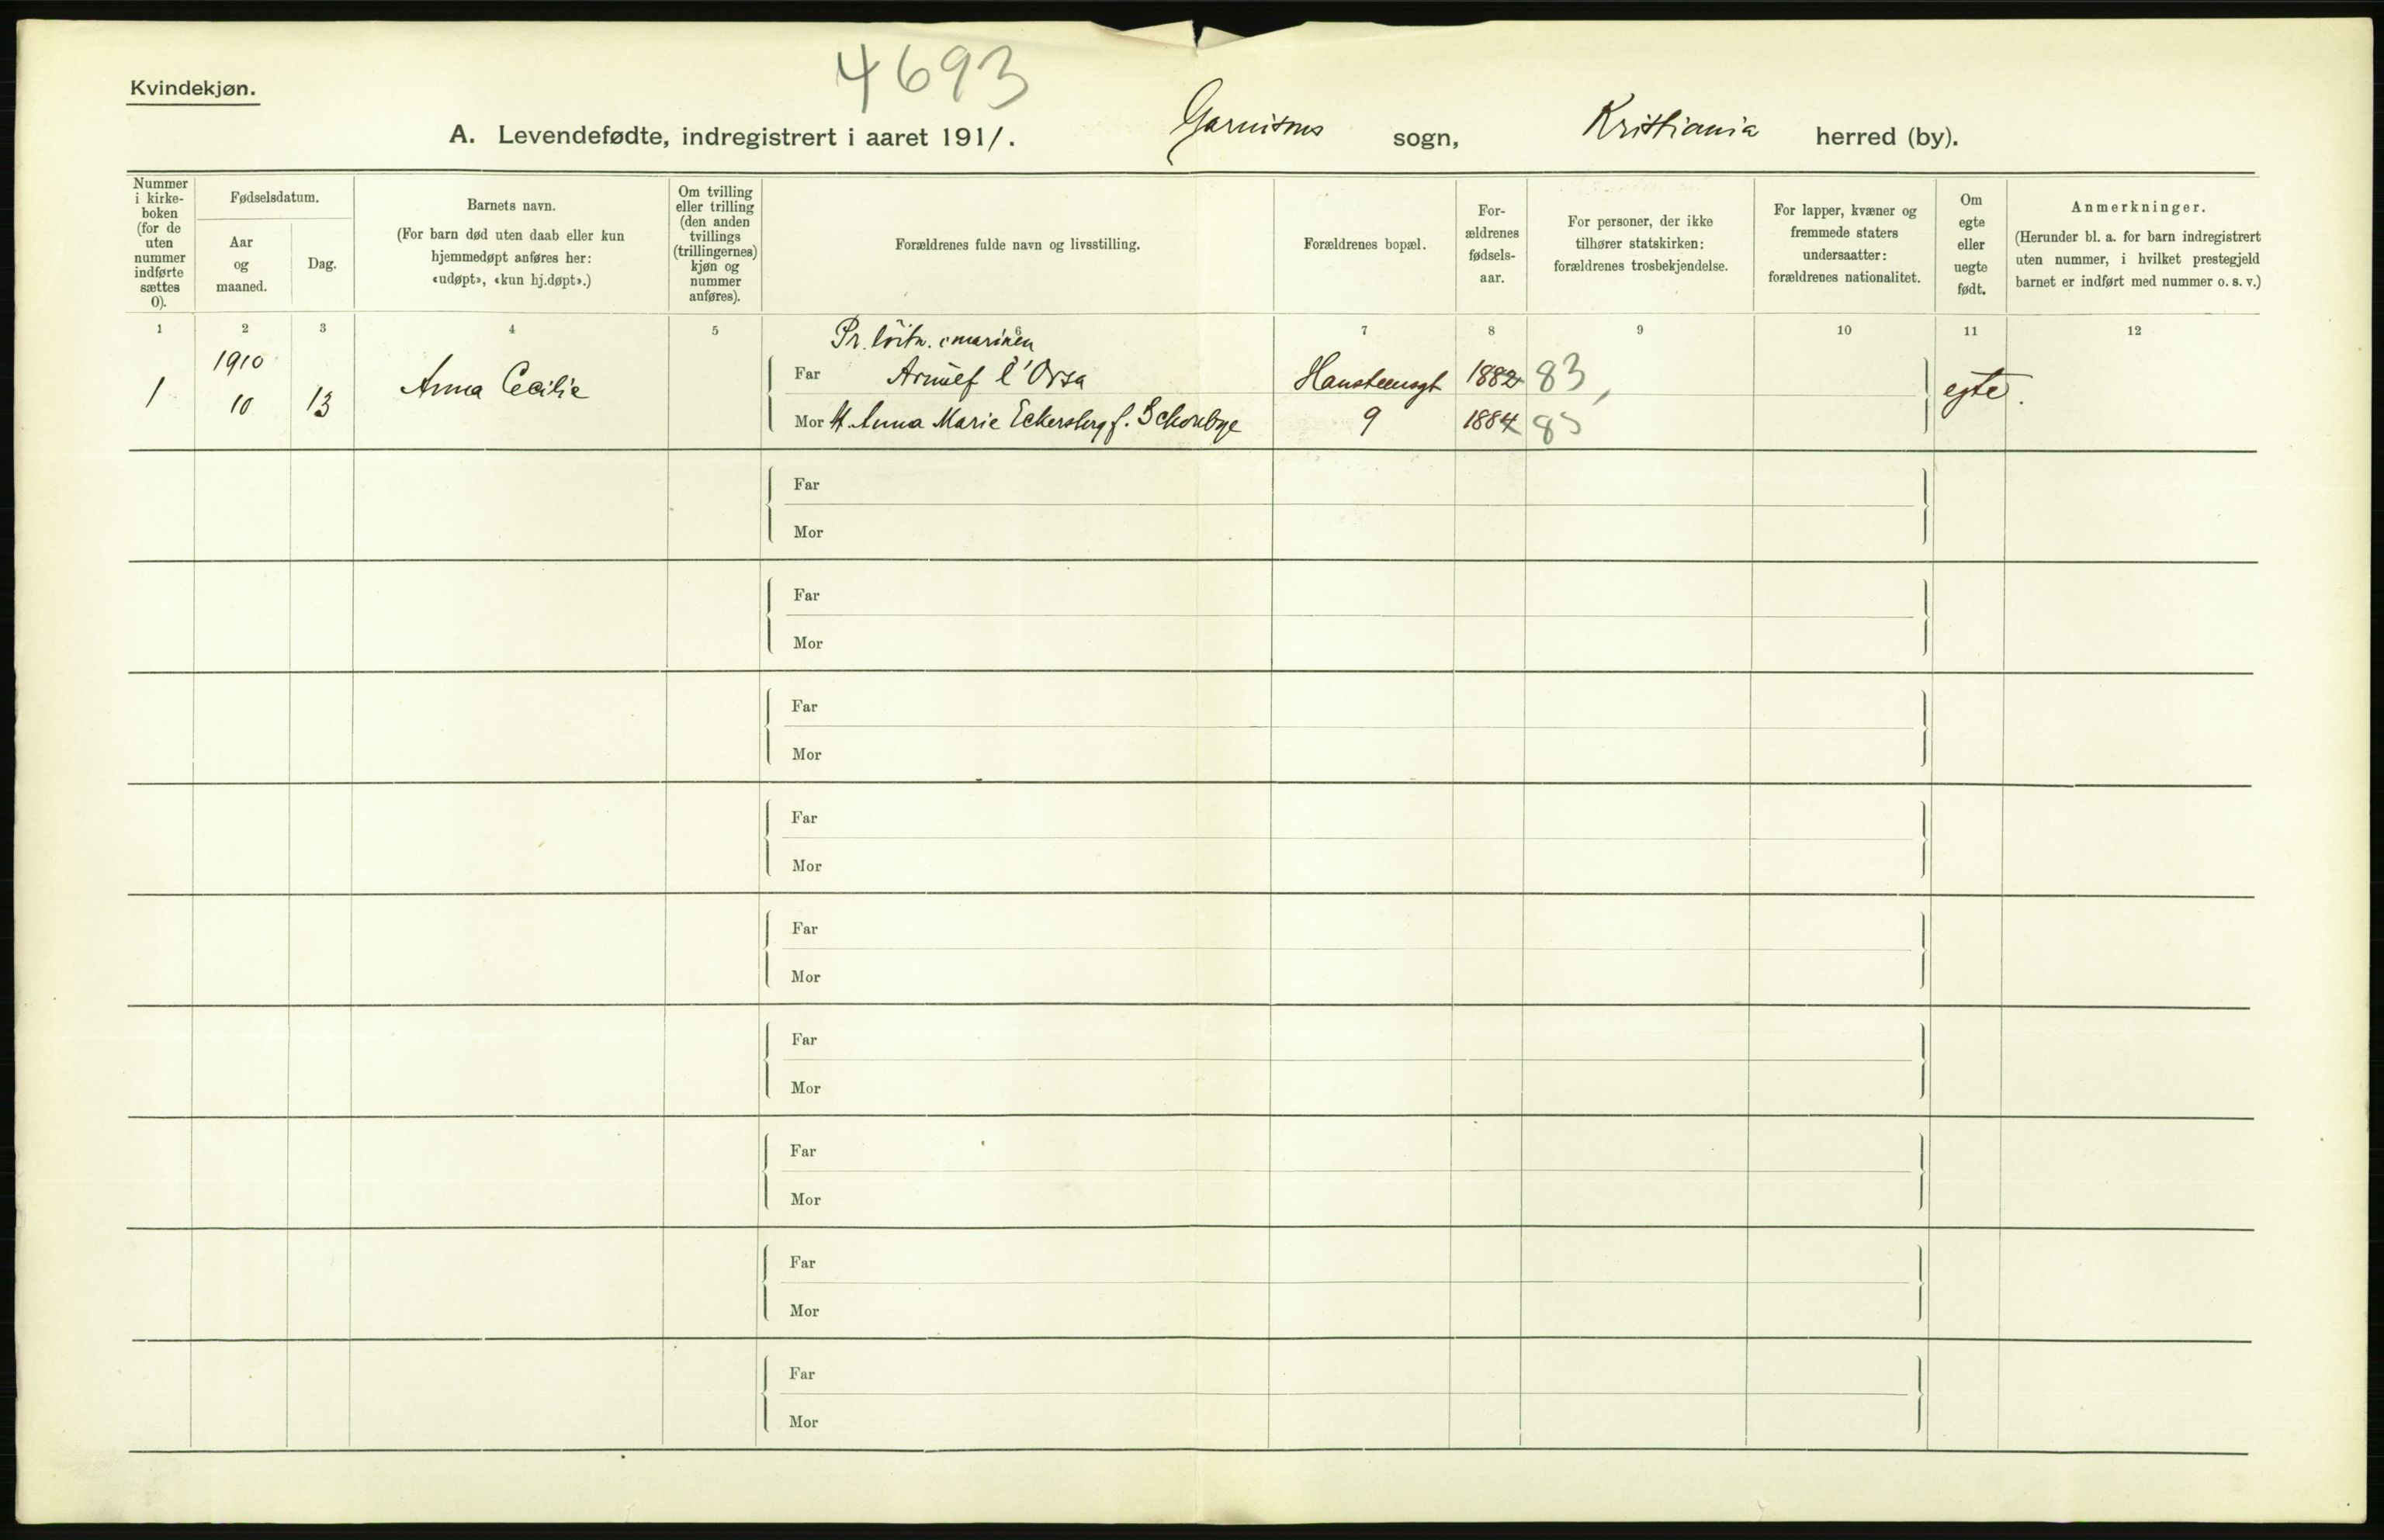 4693
Kvindekjøn.
A. Levendefødte, indregistrert i aaret 1911. Garnisons sogn, Kristiania herred (by).
Nummer
i kirke-
boken
(for de
uten
nummer
indførte
sættes
0).
Fødselsdatum.
Aar
og
maaned.
Dag.
Barnets navn.
(For barn død uten daab eller kun
hjemmedøpt anføres her:
«udøpt», «kun hj.døpt».)
Om tvilling
eller trilling
(den anden
tvillings
(trillingernes)
kjøn og
nummer
anføres).
Forældrenes fulde navn og livsstilling.
Forældrenes bopæl.
For-
ældrenes
fødsels-
aar.
For personer, der ikke
tilhører statskirken:
forældrenes trosbekjendelse.
For lapper, kvæner og
fremmede staters
undersaatter:
forældrenes nationalitet.
Om
egte
eller
uegte
født.
Anmerkninger.
(Herunder bl. a. for barn indregistrert
uten nummer, i hvilket prestegjeld
barnet er indført med nummer o. s. v.)
1 2 3 4 5 6 7 8 9 10 11 12
1
1910
10 13
Anna Cecilie
Pr. löitn. i marinen
Far l'Orsa
Mor H. Anna Marie Eckersberg f.
9
1882 83
1884 85
egte.
Far
Mor
Far
Mor
Far
Mor
Far
Mor
Far
Mor
Far
Mor
Far
Mor
Far
Mor
Far
Mor